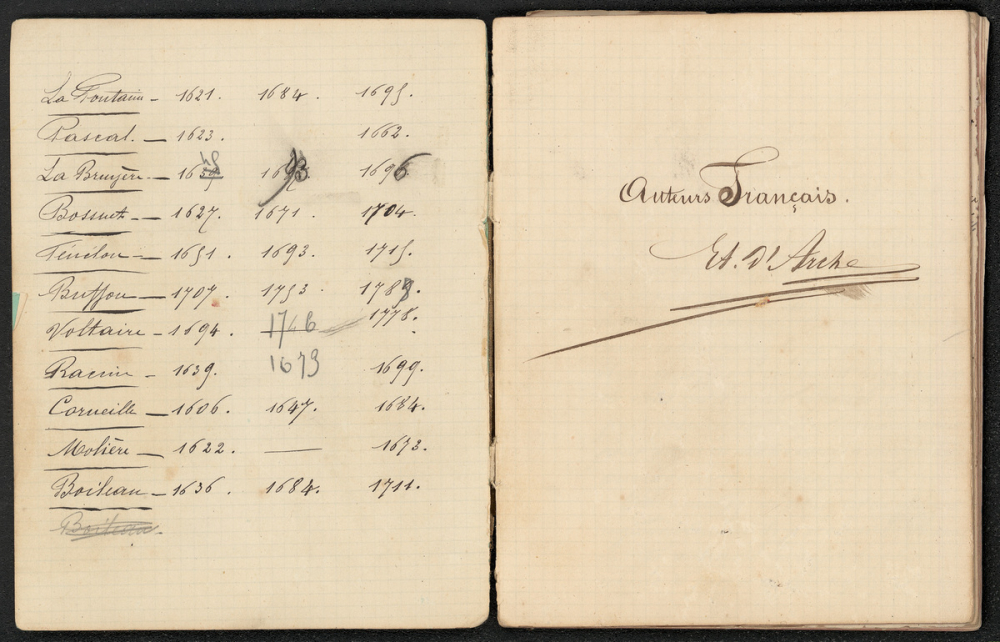 La Fontaine - 1621. 1684. 1695.
Pascal. - 1623. 1662.
La Bruyère - 1645 1693 1696
Bossuet - 1627. 1671. 1704.
Fénelon - 1651. 1693. 1715.
Buffon - 1707. 1753. 1788.
Voltaire - 1694. 1746 1778.
Racine - 1639. 1673 1699.
Corneille - 1606. 1647. 1684.
Molière - 1622. — 1673.
Boileau - 1636. 1684. 1711.
Boileau.
Auteurs Français.
Et. d'Arche